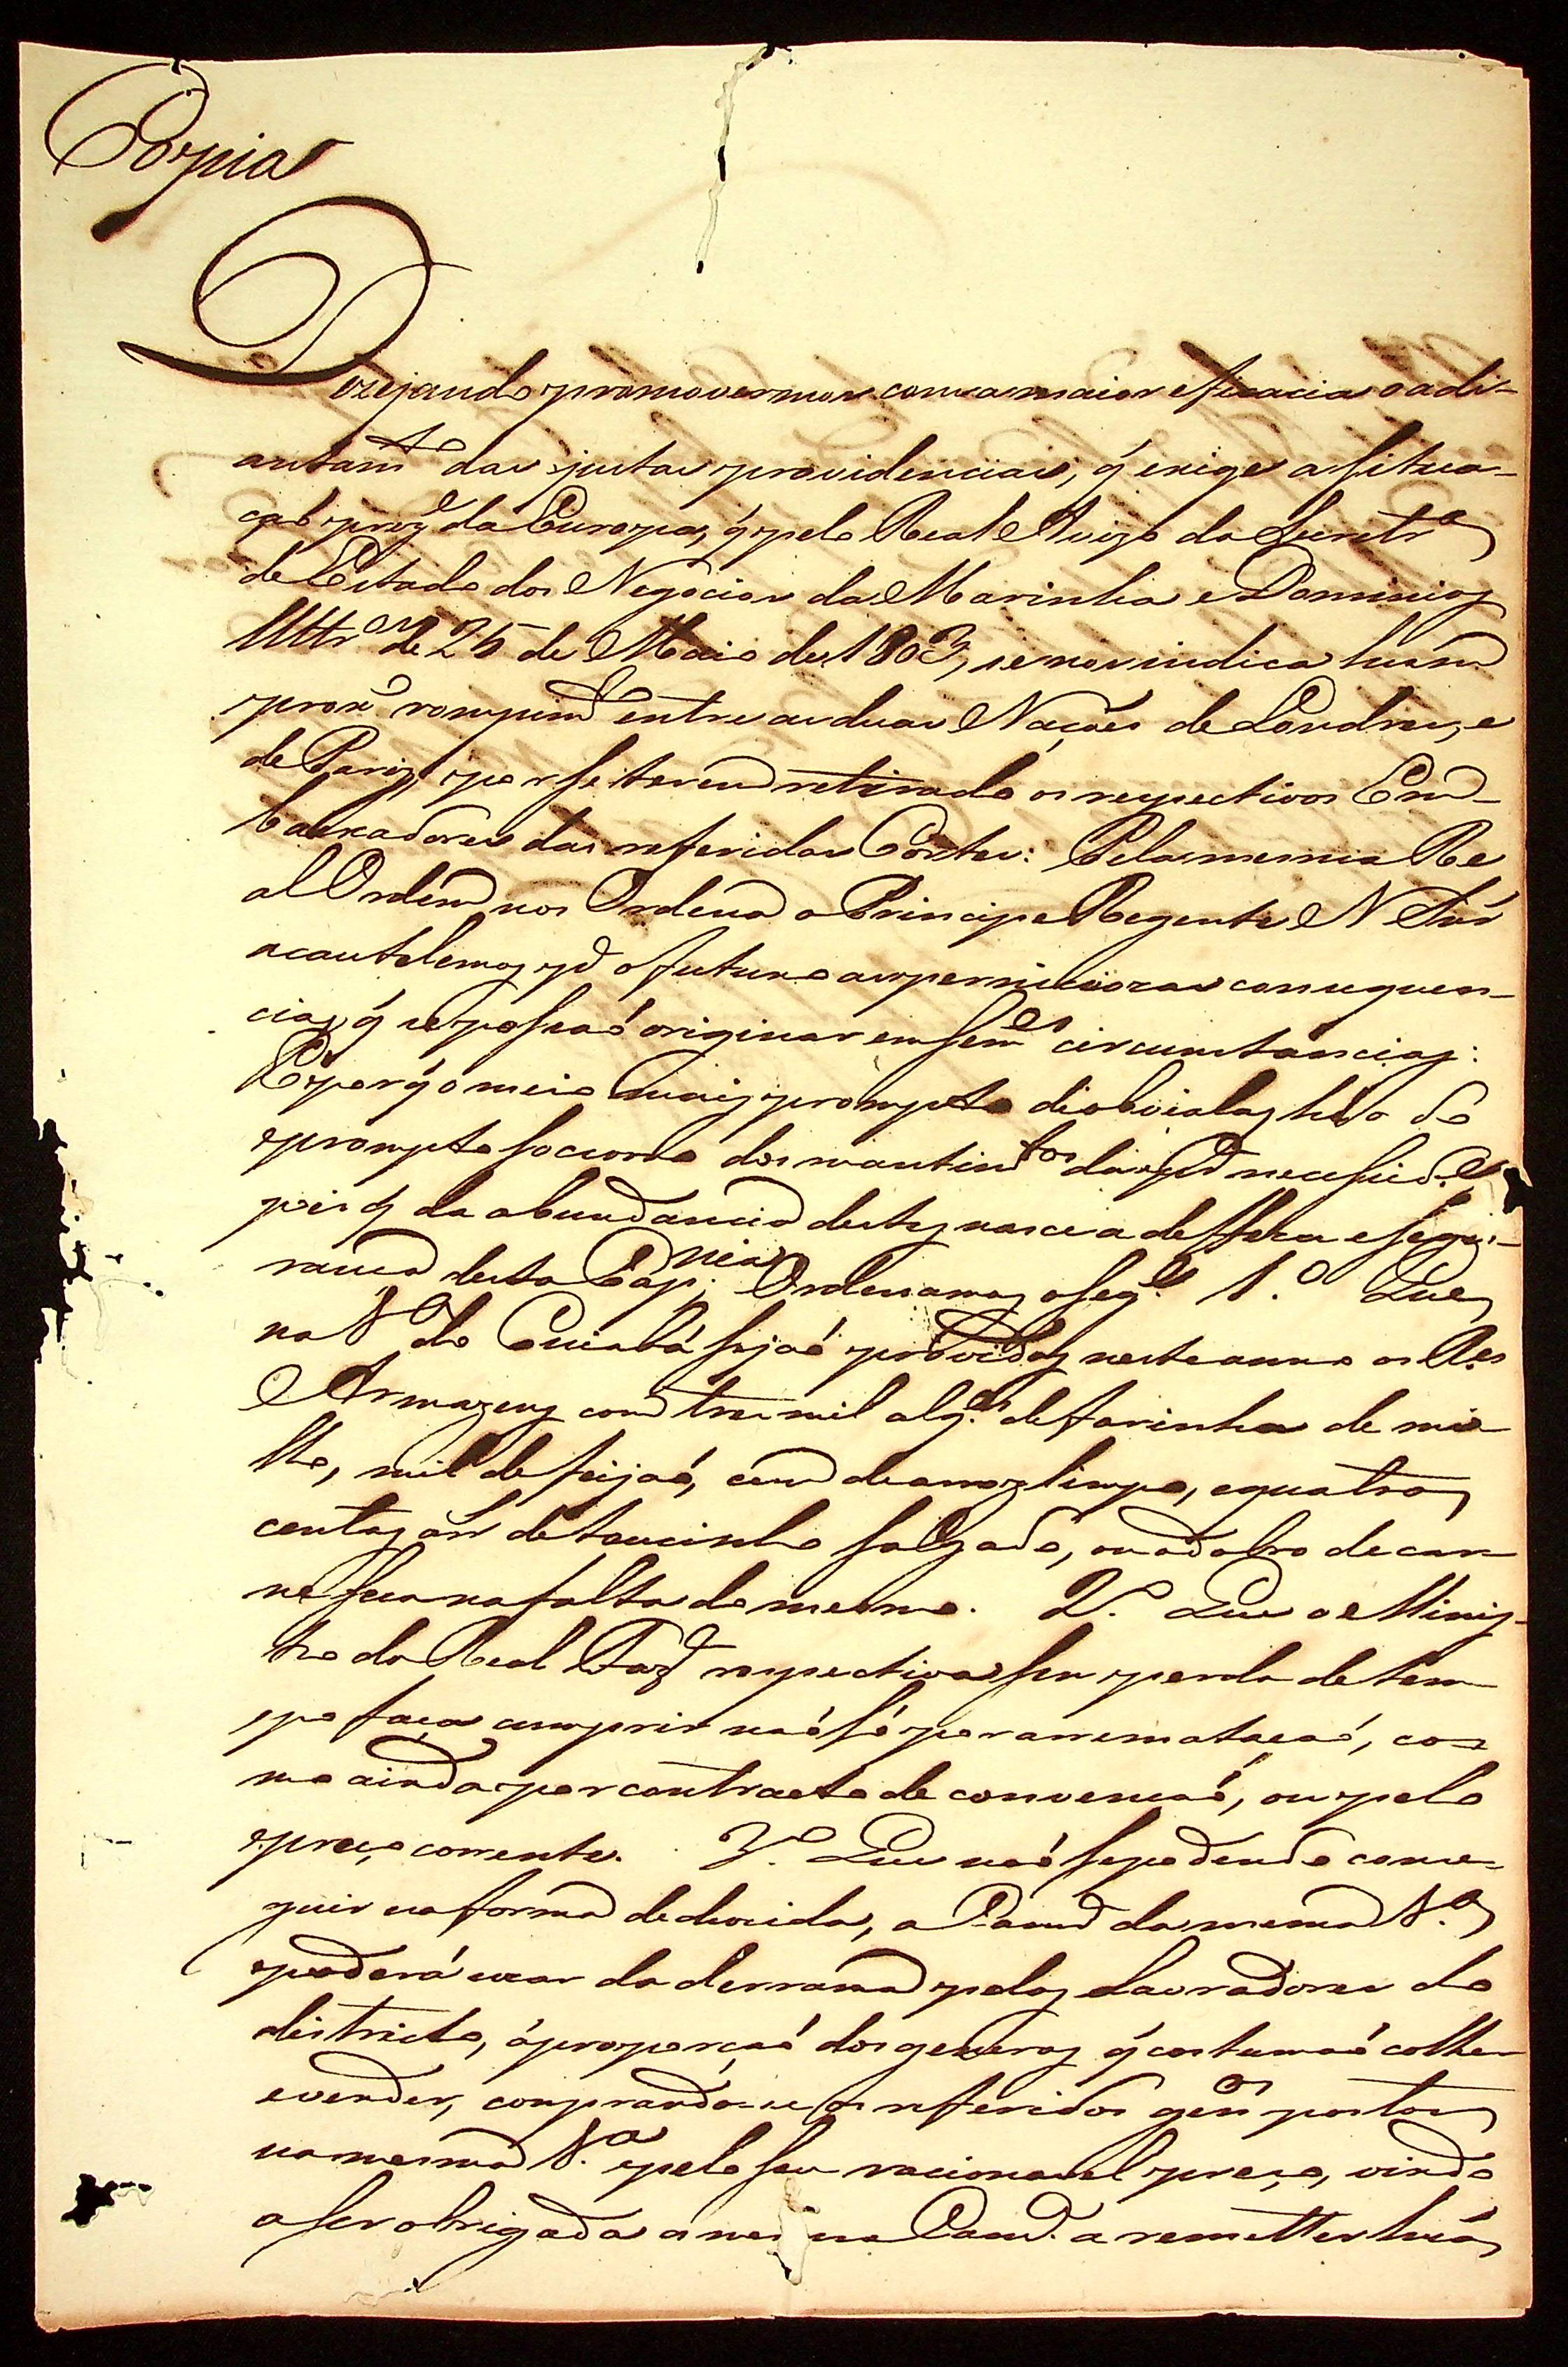 Copia
Dezejando promovermos com a maior eficacia o adi-
antam.to das justas providencias, q̃ exige a situa-
çaõ prez.e da Europa, q̃ pelo Real Avizo da Secretr.a
de Estado dos Negocios da Marinha e Dominios
Ultr.os de 25 de Maio de 1803, se nos indica hum
proxº rompim.to entre as duas Naçoẽs de Londres, e
de Pariz, por se terem retirado os respectivos Em-
baixadores das referidas Cortes: Pela mesma Re
al Ordem nos Ordena o Principe Regente N. Snr̃
acautelemos p.a o futuro as perniciozas consequen-
cias q̃ se possaõ originar em sem.es circumstancias:
E porq̃ o meio mais prompto de obvialas he o do
prompto socorro dos mantim.tos da p.ra necessid.e,
pois q̃ da abundancia destes nasce a deffeza e segu-
rança desta Cap.nia; Ordenamos o seg.te 1.º Que
na V.a do Cuiabá sejaõ providos neste anno os R.es
Armazens com tres mil alq.es de farinha de mi-
lho, mil de feijaõ, cem de arroz limpo, e quatro
centas arr̃ de toucinho salgado, ou o dobro de car-
ne seca na falta do mesmo. 2.º Que o Minis-
tro da Real Faz.a respectiva sem perda de tem-
po faça cumprir naõ só por arremataçaõ, co-
mo ainda por contracto de convençaõ, ou pelo
preço corrente. 3.º Que naõ se podendo conse-
guir na forma deduzida, a Cam.a da mesma V.a
poderá uzar da derrama pelos Lavradores do
districto, á proporçaõ dos generos q̃ costumaõ colher
e vender, comprando-se os referidos gen.os postos
na mesma V.a pelo seu racionavel preço, vindo
a ser obrigada a mesma Cam.a a remetter huã